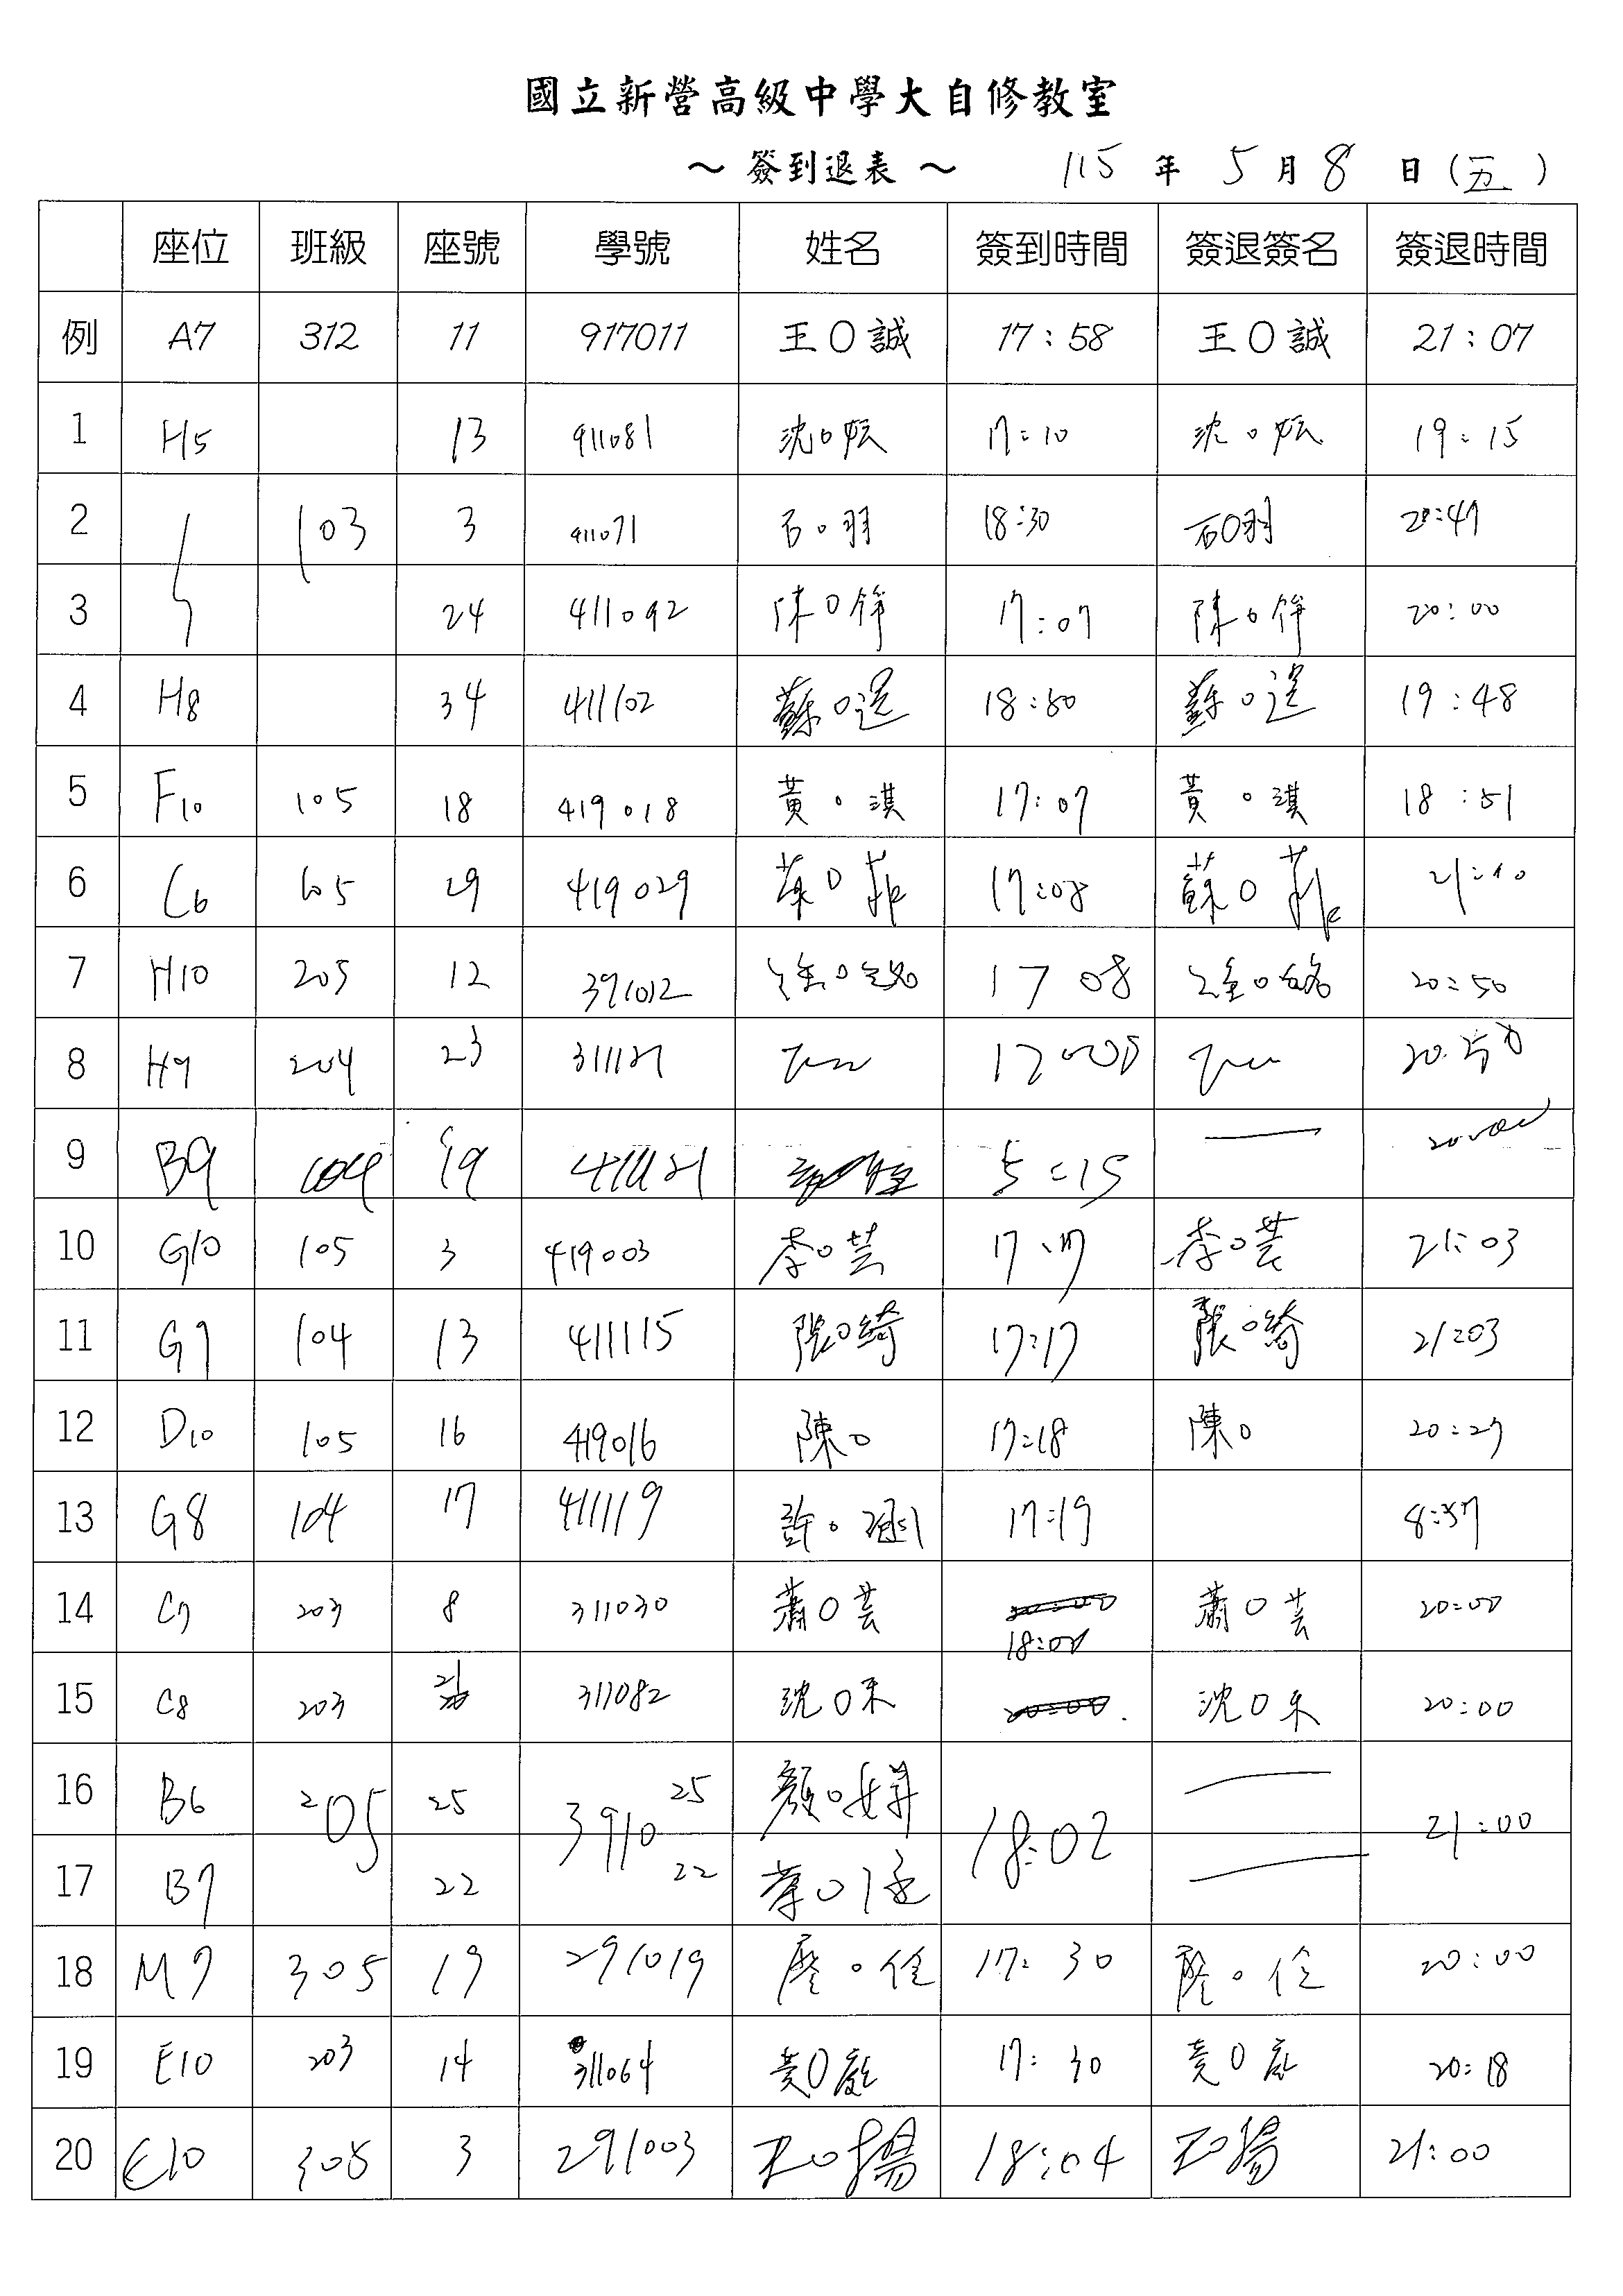 國立新營高級中學大自修教室
～ 簽到退表 ～ 115 年 5 月 8 日 (五)
座位 班級 座號 學號 姓名 簽到時間 簽退簽名 簽退時間
例 A7 312 11 917011 王〇誠 17:58 王〇誠 21:07
1 H5 13 911081 沈〇妘 17:10 沈〇妘 19:15
2 103 3 911071 石〇羽 18:30 石〇羽 20:47
3 24 411092 陳〇 17:07 陳〇 20:00
4 H8 34 411102 蘇〇 18:50 蘇〇 19:48
5 F10 105 18 419018 黃〇淇 17:07 黃〇淇 18:51
6 C6 105 29 419029 〇菲 17:08 蘇〇菲 21:10
7 H10 205 12 391012 〇 17 08 〇 20:50
8 H9 204 23 311121
9 B9 104 19 5:15
10 G10 105 3 419003 李〇芸 李〇芸 21:03
11 G7 104 13 411115 張〇綺 17:17 張〇綺 21:03
12 D10 105 16 419016 陳〇 17:18 陳〇 20:27
13 G8 104 17 411119 許〇涵 17:19 8:57
14 C7 203 8 311030 蕭〇芸 18:00 蕭〇芸 20:00
15 C8 203 21 311082 沈〇禾 沈〇禾 20:00
16 B6 205 25 3910 25 顏〇 18:02 21:00
17 B7 22 22 〇
18 M7 305 19 291019 〇佺 17:30 〇佺 20:00
19 E10 203 14 311064 黃〇 17:30 黃〇 20:18
20 E10 305 3 291003 王〇揚 18:04 王〇揚 21:00